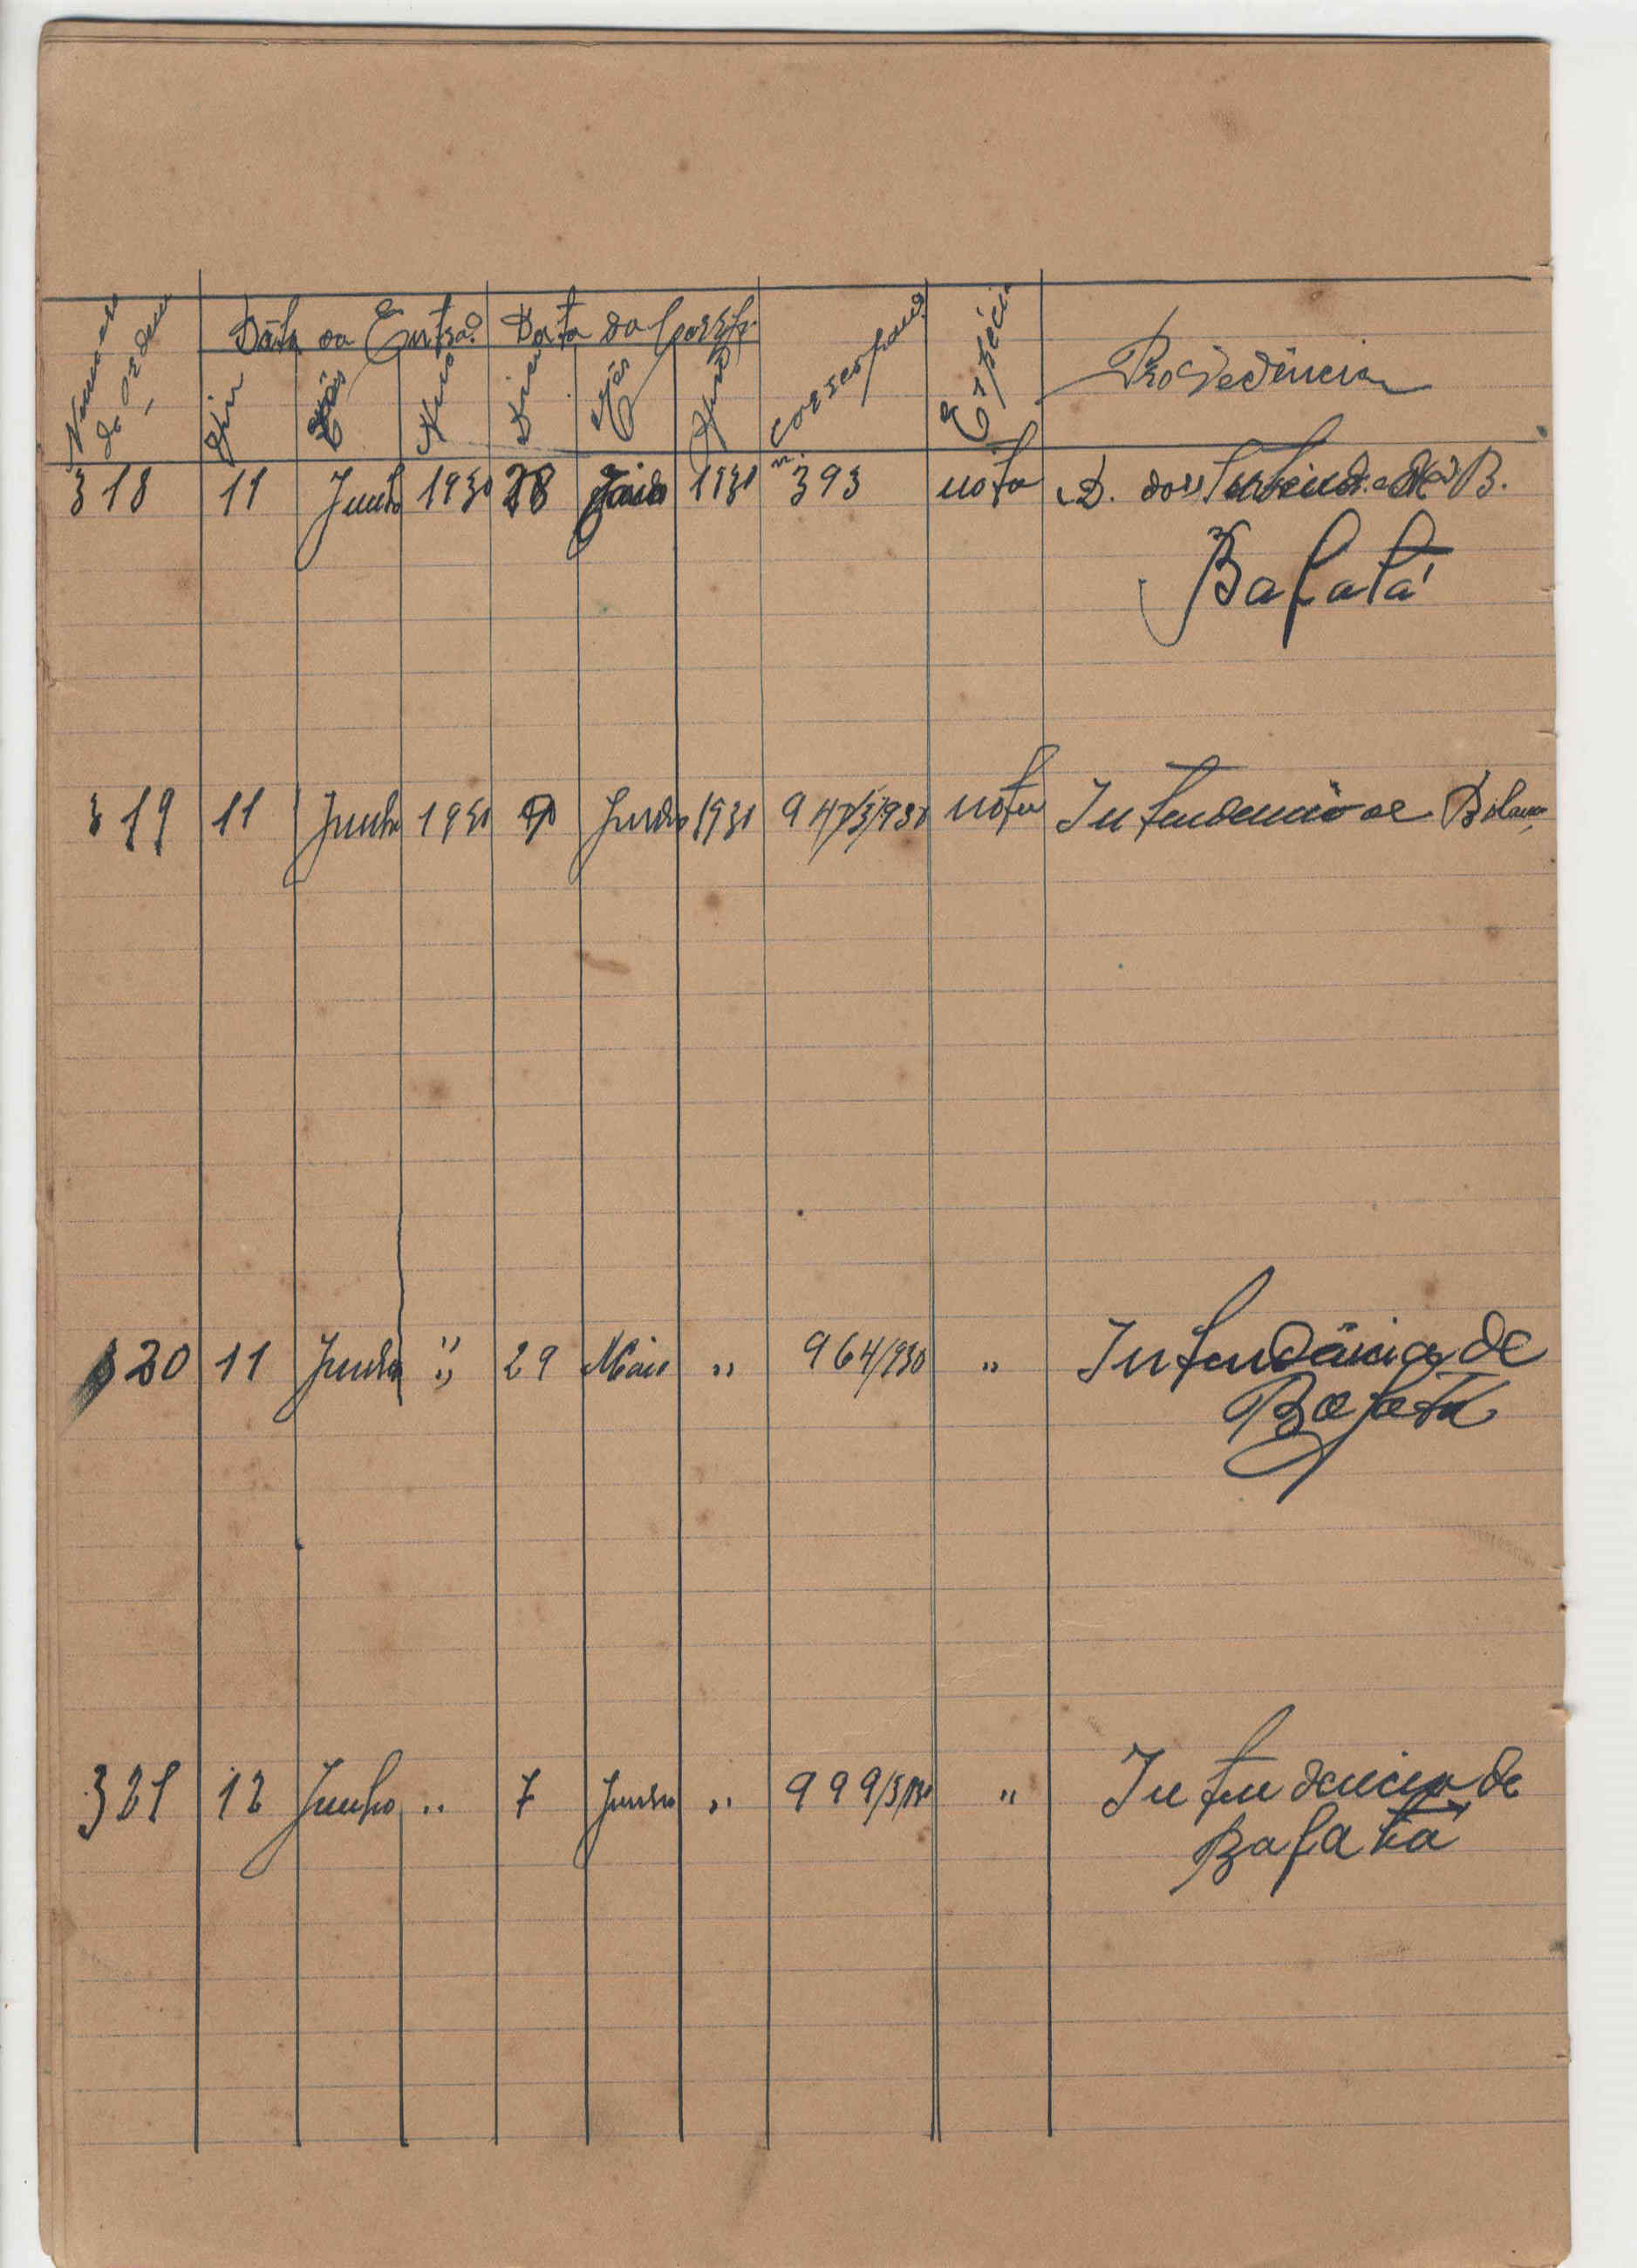 Numero de ordem
Data da Entrad. Data da Corresp.
Dia Mês Ano Dia Mês Ano n. Correspond. Espécie Procedência
318 11 Junho 1930 28 1930 393 nota D. dos B.
Bafatá
319 11 Junho 1930 Junho 1930 nota Intendencia de
320 11 Junho " 29 Maio " 964/930 " Intendência de
Bafatá
321 12 Junho " 7 Junho " 999/3/930 " Intendencia de
Bafatá